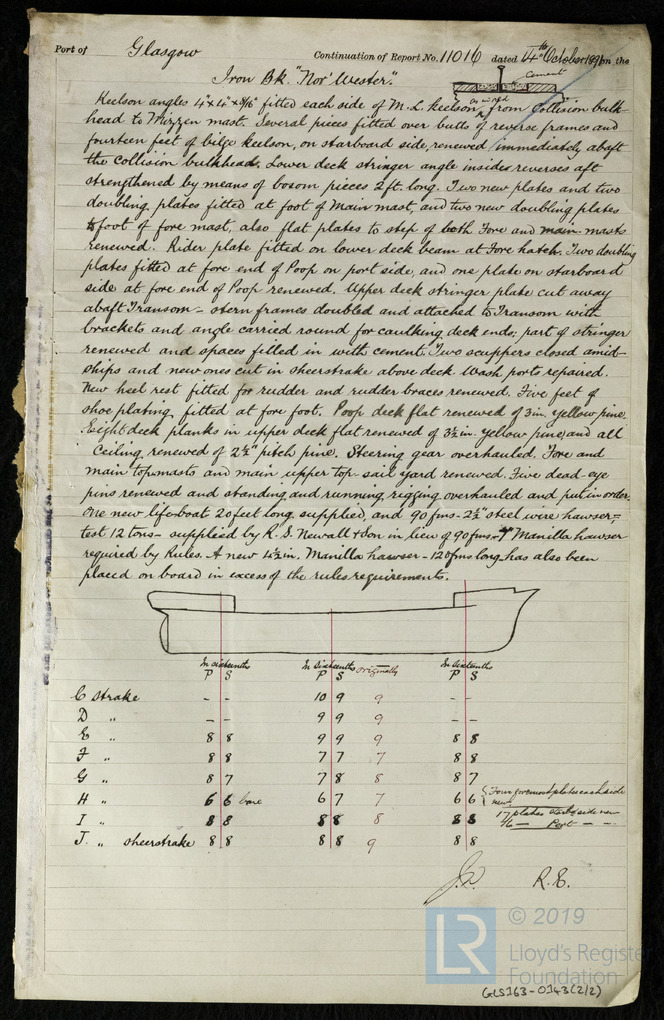 Port of Glasgow Continuation of Report No. 11016 dated 14th October 1891 on the
Iron Bk. "Nor' Wester".
Cement
Keelson angles 4" x 4" x 8/16" fitted each side of M. L. keelson from Collision bulk-
head to Mizzen mast. Several pieces fitted over butts of reverse frames and
fourteen feet of bilge keelson, on starboard side, renewed immediately abaft
the Collision bulkheads. Lower deck stringer angle inside reverses aft
strengthened by means of bosom pieces 2 ft. long. Two new plates and two
doubling plates fitted at foot of Main mast, and two new doubling plates
to foot of fore mast, also flat plates to step of both Fore and main masts
renewed. Rider plate fitted on lower deck beam at Fore hatch. Two doubling
plates fitted at fore end of Poop on port side, and one plate on starboard
side at fore end of Poop renewed. Upper deck stringer plate cut away
abaft Transom - stern frames doubled and attached to Transom with
brackets and angle carried round for caulking deck ends; part of stringer
renewed and spaces filled in with cement. Two scuppers closed amid-
ships and new ones cut in sheerstrake above deck. Wash ports repaired.
New heel rest fitted for rudder and rudder braces renewed. Five feet of
shoe plating fitted at fore foot. Poop deck flat renewed of 3 in. yellow pine.
Eight deck planks in upper deck flat renewed of 3½ in. yellow pine, and all
Ceiling renewed of 2½" pitch pine. Steering gear overhauled. Fore and
main topmasts and main upper top-sail yard renewed. Five dead-eye
pins renewed and standing and running rigging overhauled and put in order.
One new life-boat 20 feet long supplied, and 90 fms - 2½" steel wire hawser =
test 12 tons - supplied by R. S. Newall & Son in lieu of 90 fms - 7" Manilla hawser
required by Rules. A new 4½ in. Manilla hawser - 120 fms long has also been
placed on board in excess of the rules requirements.
In sixteenths In Sixteenths originally In Sixteenths
P S P S P S
C strake - - 10 9 9 - -
D " - - 9 9 9 - -
E " 8 8 9 9 9 8 8
F " 8 8 7 7 7 8 8
G " 8 7 7 8 8 8 7
H " 6 6 bare 6 7 7 6 6 { Four foremost plates each side
new.
I " 8 8 8 8 8 8 8 17 plates starbd side new
16 — Port — -
J. " sheerstrake 8 8 8 8 9 8 8
R. S.
© 2019
LR
Lloyd's Register
Foundation
GLS163-0143 (2/2)